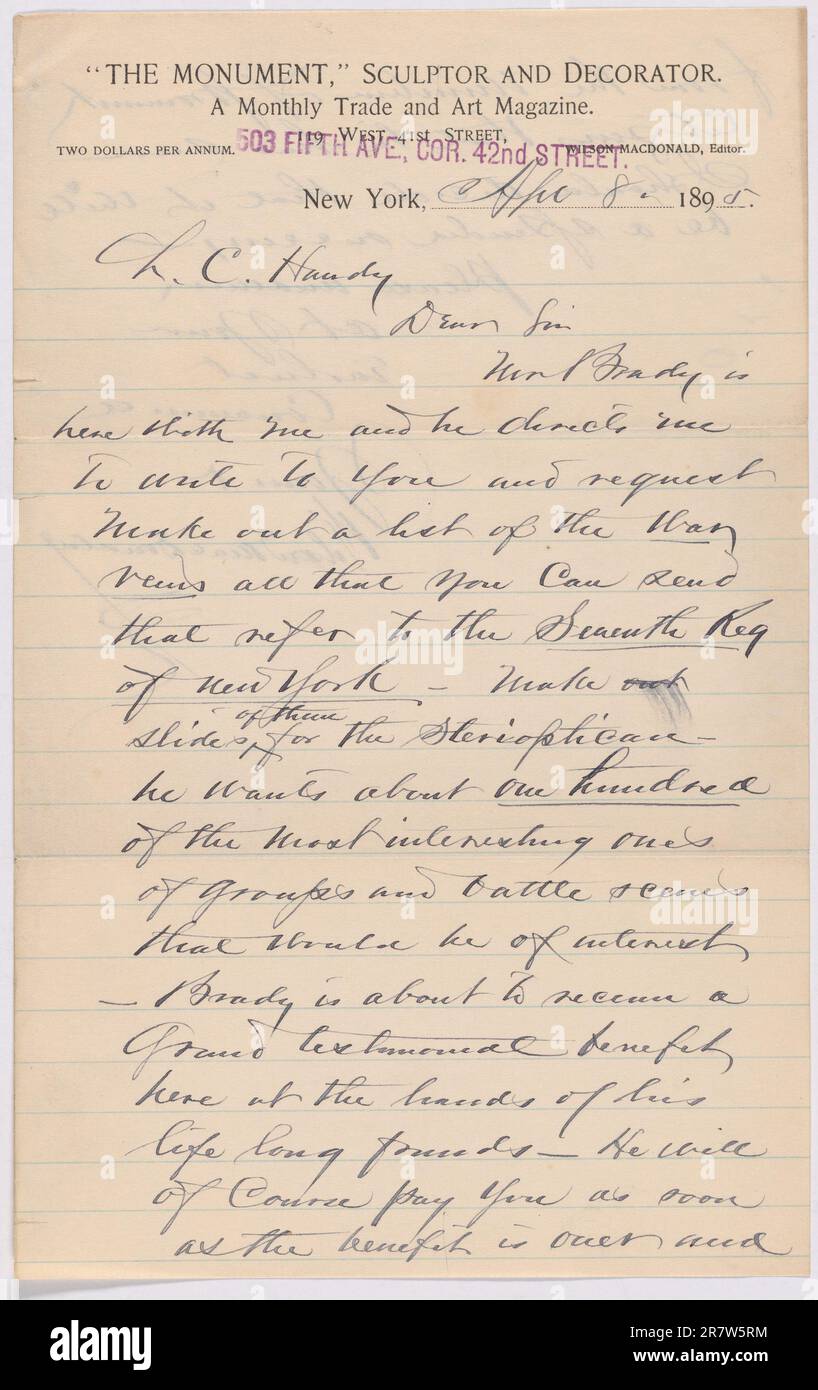 "THE MONUMENT," SCULPTOR AND DECORATOR.
A Monthly Trade and Art Magazine.
119 WEST 41st STREET,
503 FIFTH AVE, COR. 42nd STREET.
TWO DOLLARS PER ANNUM. WILSON MACDONALD, Editor.
New York, Apr 8. 1895.
L. C. Handy
Dear Sir
Mr Brady is
here with me and he directs me
to write to you and request
make out a list of the War
views all that you can send
that refer to the Seventh Reg
of New York – make out
of them
slides, for the Sterioptican –
he wants about one hundred
of the most interesting ones
of groups and battle scenes
that would be of interest
– Brady is about to receive a
Grand testimonial benefit
here at the hands of his
life long friends – He will
of Course pay you as soon
as the benefit is over and
alamy
alamy
alamy
Image ID: 2R7W5RM
www.alamy.com